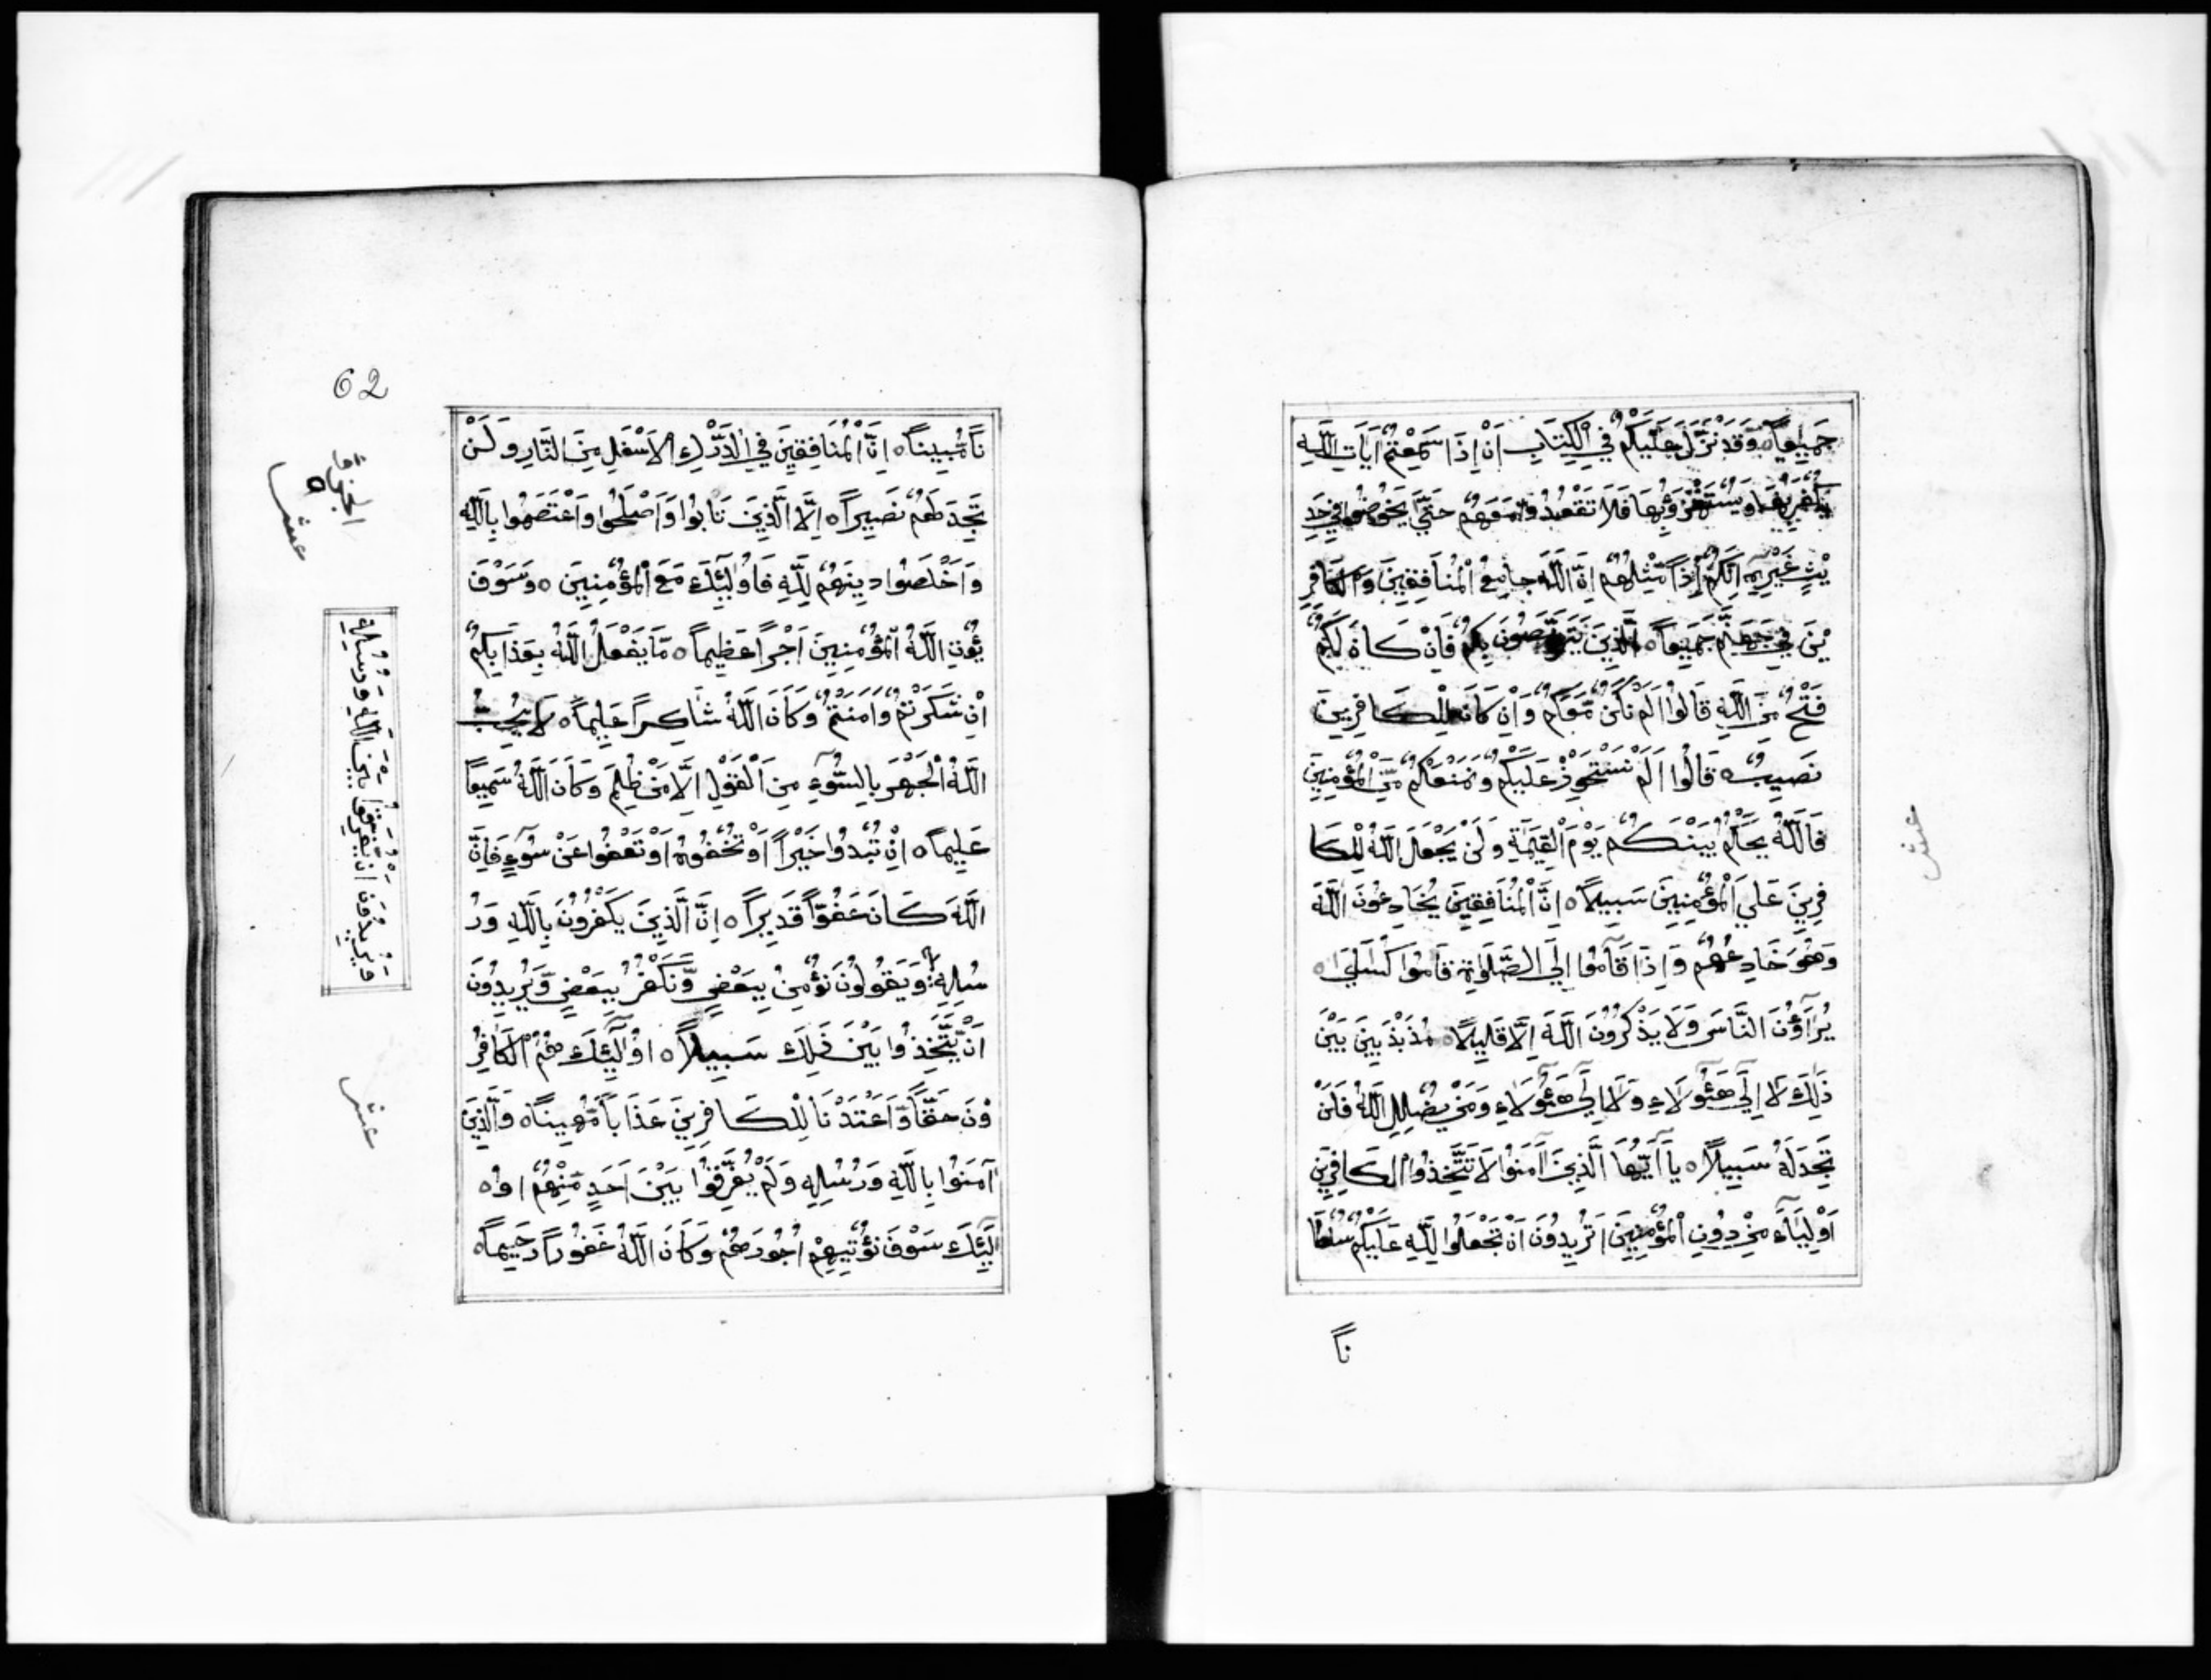 جَمِيعاً ٥ وَقَدْ نَزَّلَ عَلَيْكُمْ فِي الْكِتَابِ اَنْ اِذَا سَمِعْتُمْ اٰيَاتِ اللّٰهِ
يُكْفَرُ بِهَا وَيُسْتَهْزَؤُ بِهَا فَلَا تَقْعُدُوْا مَعَهُمْ حَتَّي يَخُوْضُوا فِي حَدِ
يْثٍ غَيْرِهِ اِنَّكُمْ اِذاً مِّثْلُهُمْ اِنَّ اللّٰهَ جَامِعُ الْمُنَافِقِيْنَ وَالْكَافِرِ
يْنَ فِي جَهَنَّمَ جَمِيْعاً ٥ الَّذِيْنَ يَتَرَبَّصُوْنَ بِكُمْ فَاِنْ كَانَ لَكُمْ
فَتْحٌ مِنَ اللّٰهِ قَالُوْا اَلَمْ نَكُنْ مَّعَكُمْ وَاِنْ كَانَ لِلْكَافِرِيْنَ
نَصِيبٌ قَالُوا اَلَمْ نَسْتَحْوِذْ عَلَيْكُمْ وَنَمْنَعْكُمْ مِّنَ الْمُؤْمِنِيْنَ
فَاللّٰهُ يَحْكُمُ بَيْنَكُمْ يَوْمَ الْقِيٰمَةِ وَلَنْ يَجْعَلَ اللّٰهُ لِلْكَا
فِرِيْنَ عَلَي الْمُؤْمِنِيْنَ سَبِيْلًا ٥ اِنَّ الْمُنَافِقِيْنَ يُخَادِعُوْنَ اللّٰهَ
وَهُوَ خَادِعُهُمْ وَاِذَا قَامُوا اِلَي الصَّلٰوةِ قَامُوْا كُسَالَي ٥
يُرَاؤُنَ النَّاسَ وَلَا يَذْكُرُوْنَ اللّٰهَ اِلَّا قَلِيْلًا ٥ مُذَبْذَبِيْنَ بَيْنَ
ذٰلِكَ لَا اِلَي هَئُولَاءِ وَلَا اِلَي هَئُولَاءِ وَمَنْ يُضْلِلِ اللّٰهُ فَلَنْ
تَجِدَ لَهُ سَبِيْلًا ٥ يَا اَيُّهَا الَّذِيْنَ اٰمَنُوْا لَا تَتَّخِذُوا الْكَافِرِيْنَ
اَوْلِيَاءَ مِنْ دُوْنِ الْمُؤْمِنِيْنَ اَتُرِيْدُوْنَ اَنْ تَجْعَلُوا لِلّٰهِ عَلَيْكُمْ سُلْطَا
ناً
عشر
62
ناً مُّبِيناً ٥ اِنَّ الْمُنَافِقِيْنَ فِي الدَّرْكِ الْاَسْفَلِ مِنَ النَّارِ وَلَنْ
تَجِدَ لَهُمْ نَصِيراً ٥ اِلَّا الَّذِيْنَ تَابُوا وَاَصْلَحُوا وَاعْتَصَمُوا بِاللّٰهِ
وَاَخْلَصُوا دِيْنَهُمْ لِلّٰهِ فَاُولٰئِكَ مَعَ الْمُؤْمِنِيْنَ ٥ وَسَوْفَ
يُؤْتِ اللّٰهُ الْمُؤْمِنِيْنَ اَجْراً عَظِيْماً ٥ مَا يَفْعَلُ اللّٰهُ بِعَذَابِكُمْ
اِنْ شَكَرْتُمْ وَاٰمَنْتُمْ وَكَانَ اللّٰهُ شَاكِراً عَلِيْماً ٥ لَا يُحِبُّ
اللّٰهُ الْجَهْرَ بِالسُّوْءِ مِنَ الْقَوْلِ اِلَّا مَنْ ظُلِمَ وَكَانَ اللّٰهُ سَمِيْعًا
عَلِيْماً ٥ اِنْ تُبْدُوا خَيْراً اَوْ تُخْفُوْهُ اَوْ تَعْفُوا عَنْ سُوْءٍ فَاِنَّ
اللّٰهَ كَانَ عَفُوّاً قَدِيْراً ٥ اِنَّ الَّذِيْنَ يَكْفُرُوْنَ بِاللّٰهِ وَرُ
سُلِهِ وَيَقُوْلُوْنَ نُؤْمِنُ بِبَعْضٍ وَّنَكْفُرُ بِبَعْضٍ وَّيُرِيْدُوْنَ
اَنْ يَّتَّخِذُوا بَيْنَ ذٰلِكَ سَبِيْلاً ٥ اُوْلٰئِكَ هُمُ الْكَافِرُ
وْنَ حَقّاً وَّاَعْتَدْنَا لِلْكَافِرِيْنَ عَذَاباً مُّهِيْناً ٥ وَالَّذِيْنَ
اٰمَنُوْا بِاللّٰهِ وَرُسُلِهِ وَلَمْ يُفَرِّقُوْا بَيْنَ اَحَدٍ مِّنْهُمْ اُو
لٰئِكَ سَوْفَ نُؤْتِيْهِمْ اُجُوْرَهُمْ وَكَانَ اللّٰهُ غَفُوْراً رَحِيْماً ٥
عشر
وَيُرِيْدُوْنَ اَنْ يُّفَرِّقُوْا بَيْنَ اللّٰهِ وَرُسُلِهِ
عشر